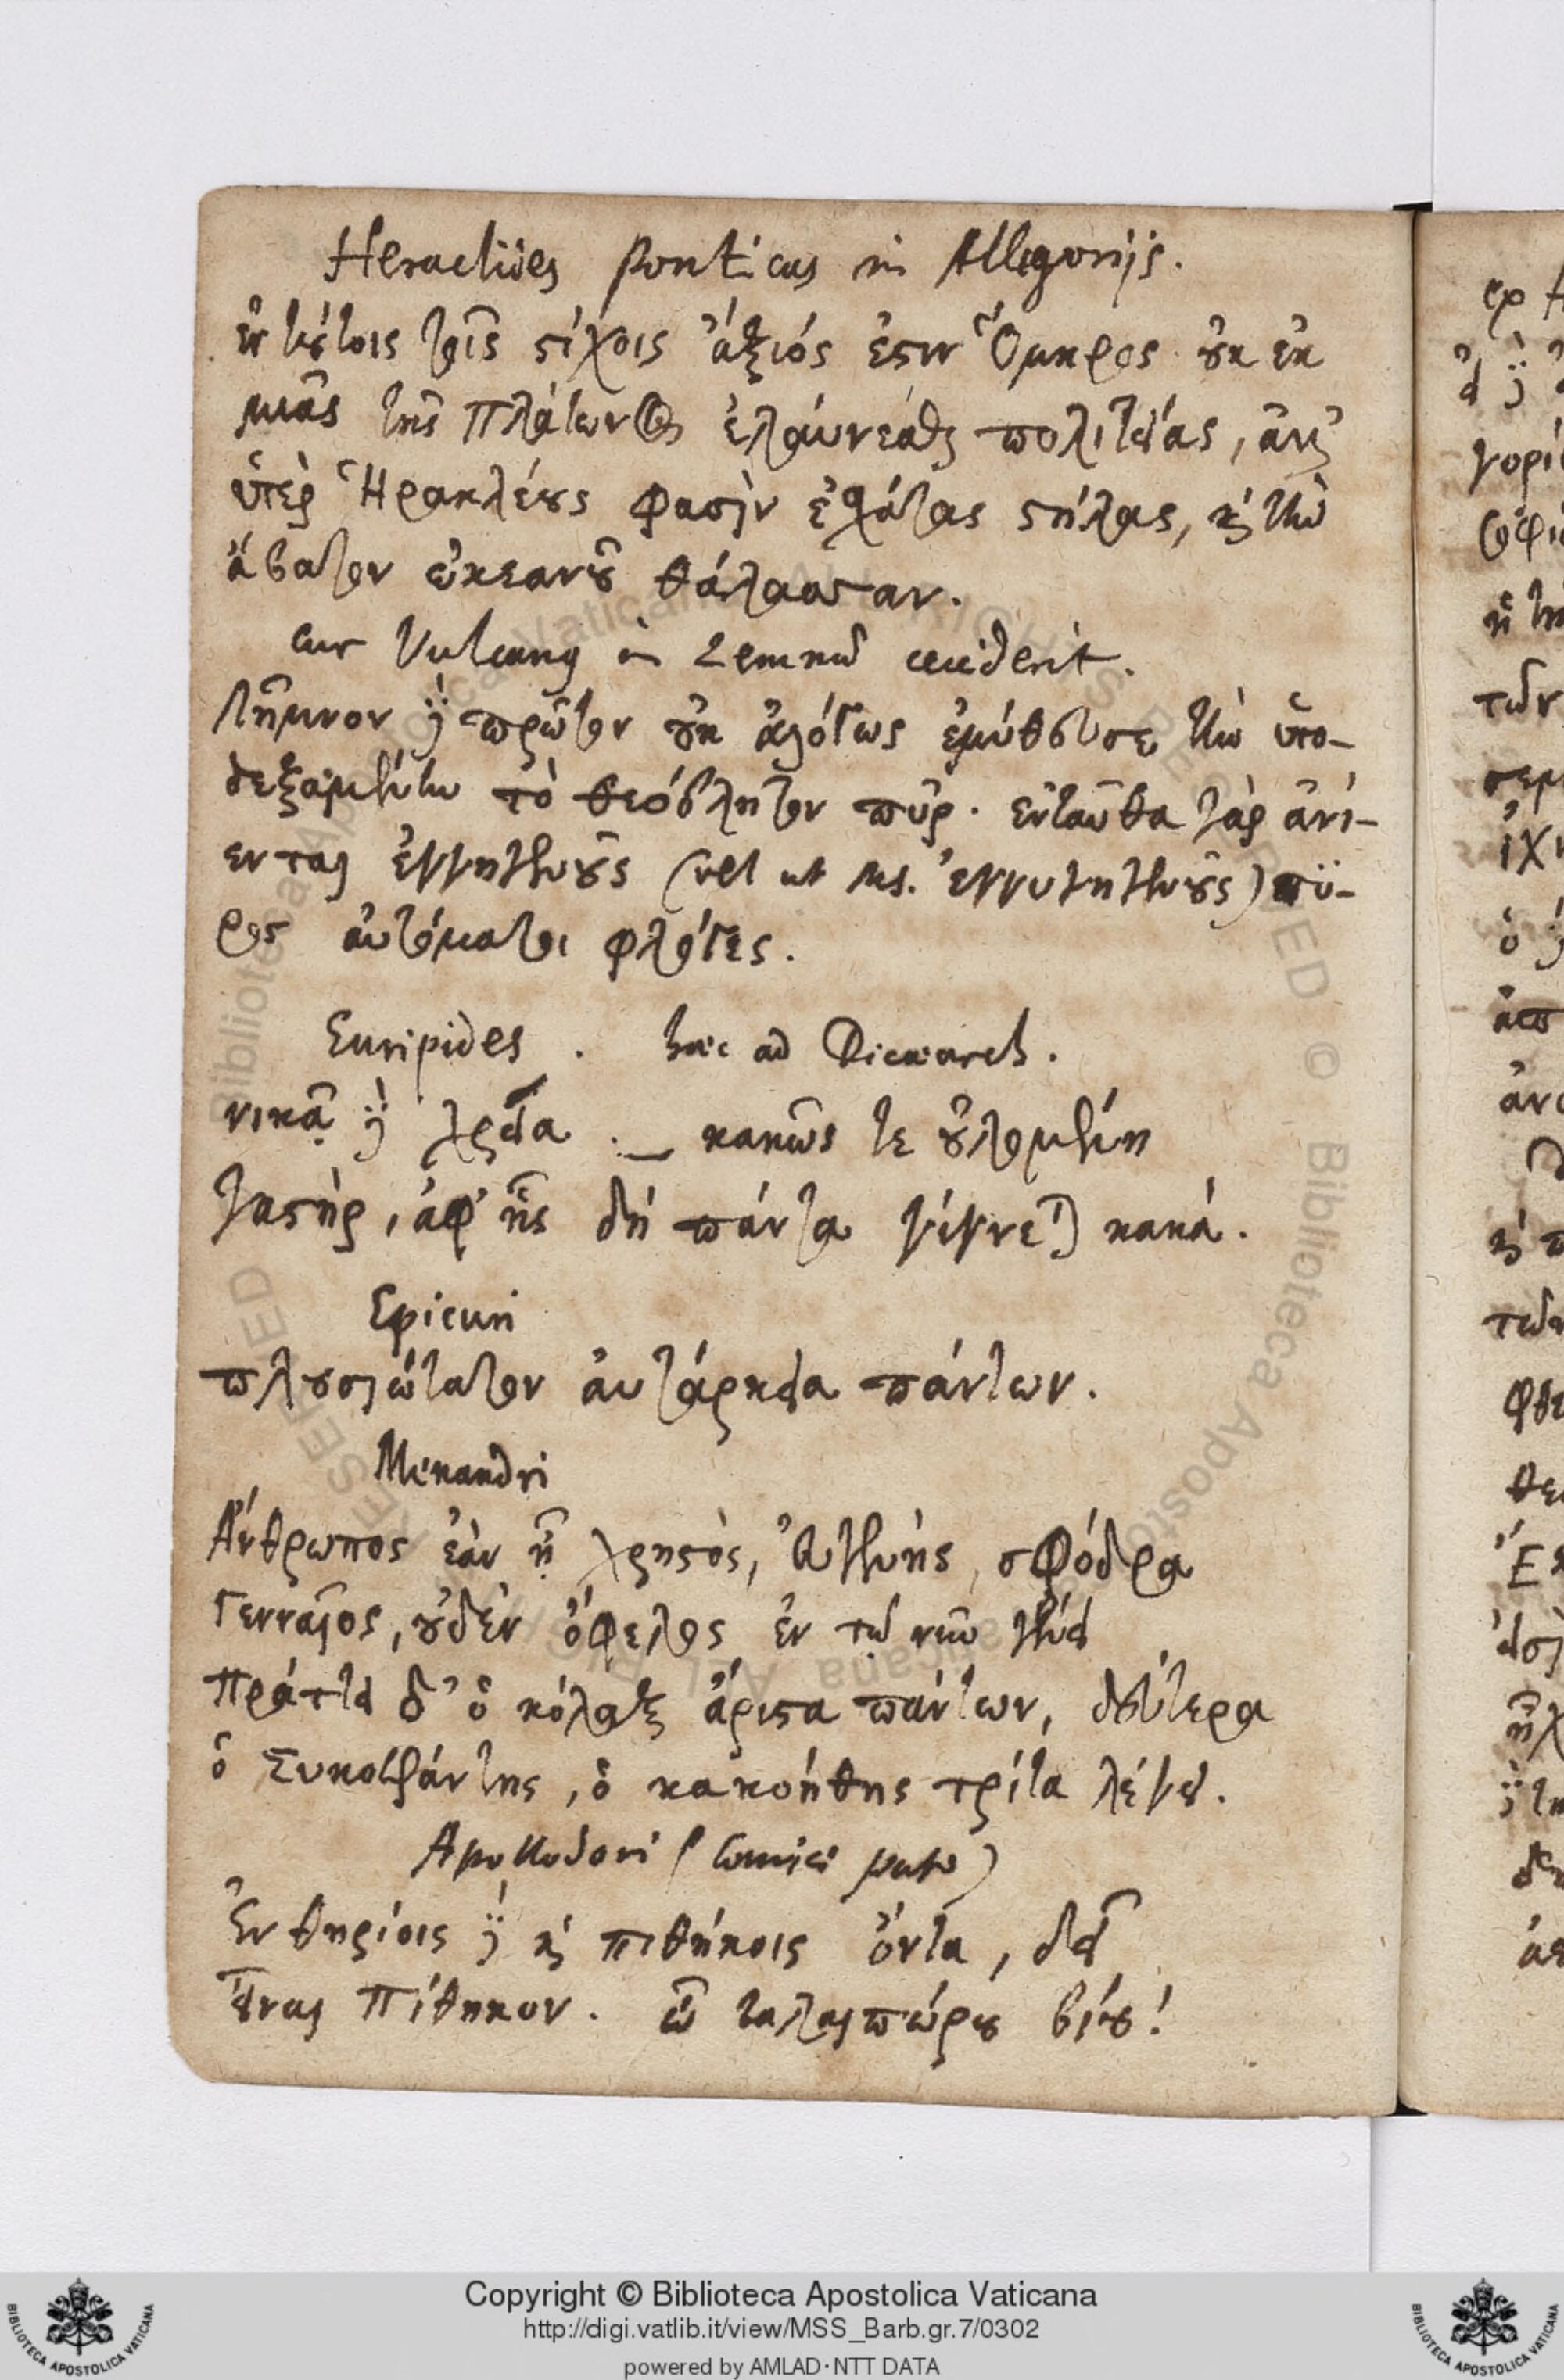 Heraclides Ponticus in Allegorijs.
ἐν τούτοις τοῖς στίχοις ἄξιός ἐστιν Ὅμηρος οὐκ ἐκ
μιᾶς τῆς Πλάτωνος ἐλαύνεσθαι πολιτείας, ἀλλ'
ὑπὲρ Ἡρακλέους φασὶν ἐσχάτας στήλας, καὶ τὴν
ἄβατον ὠκεανοῦ θάλασσαν.
cur Vulcanus in Lemno ceciderit.
Λῆμνον δὲ πρῶτον οὐκ ἀλόγως ἐμύθευσε τὴν ὑπο-
δεξαμένην τὸ θεόβλητον πῦρ. ἐνταῦθα γὰρ ἀνί-
ενται ἐγγηγενοῦς (vel ut Ms. ἐγγυγηγενοῦς) πυ-
ρὸς αὐτόματοι φλόγες.
Euripides. haec ad Dicaearch.
νικᾷ δὲ χρεία. _ κακῶς τε οὐλομένη
γαστὴρ, ἀφ' ἧς δὴ πάντα γίγνεται κακά.
Epicuri
πλουσιώτατον αὐτάρκεια πάντων.
Menandri
Ἄνθρωπος ἐὰν ᾖ χρηστὸς, εὐγενὴς, σφόδρα
γενναῖος, οὐδὲν ὄφελος ἐν τῷ νῦν γένει
Πράττει δ' ὁ κόλαξ ἄριστα πάντων, δεύτερα
ὁ Συκοφάντης, ὁ κακοήθης τρίτα λέγει.
Apollodori (Comici puto)
Ἐν θηρίοις δὲ καὶ πιθήκοις ὄντα, δεῖ
εἶναι πίθηκον. ὢ ταλαιπώρου βίου!
Copyright © Biblioteca Apostolica Vaticana
http://digi.vatlib.it/view/MSS_Barb.gr.7/0302
powered by AMLAD·NTT DATA
BIBLIOTECA APOSTOLICA VATICANA
BIBLIOTECA APOSTOLICA VATICANA